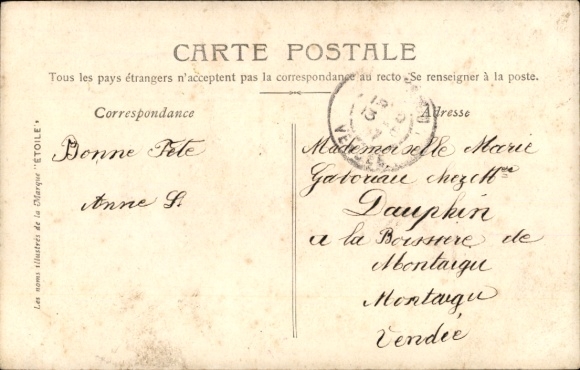 CARTE POSTALE
Tous les pays étrangers n'acceptent pas la correspondance au recto (Se renseigner à la poste.
Correspondance
Bonne Fête
Anne S.
Adresse
Mademoiselle Marie
Gaboriau chez Mme
Dauphin
a la Boissiere de
Montaigu
Montaigu
Vendée
Les noms illustrés de la Marque "ÉTOILE"
VENDEE